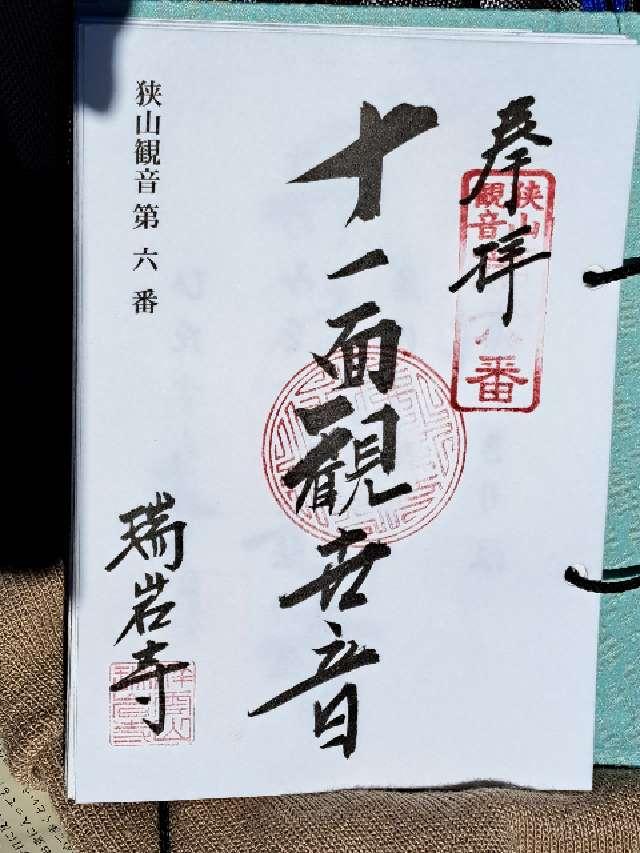 奉拝
狭山
観音
番
十一面観世音
狭山観音第六番
瑞岩寺